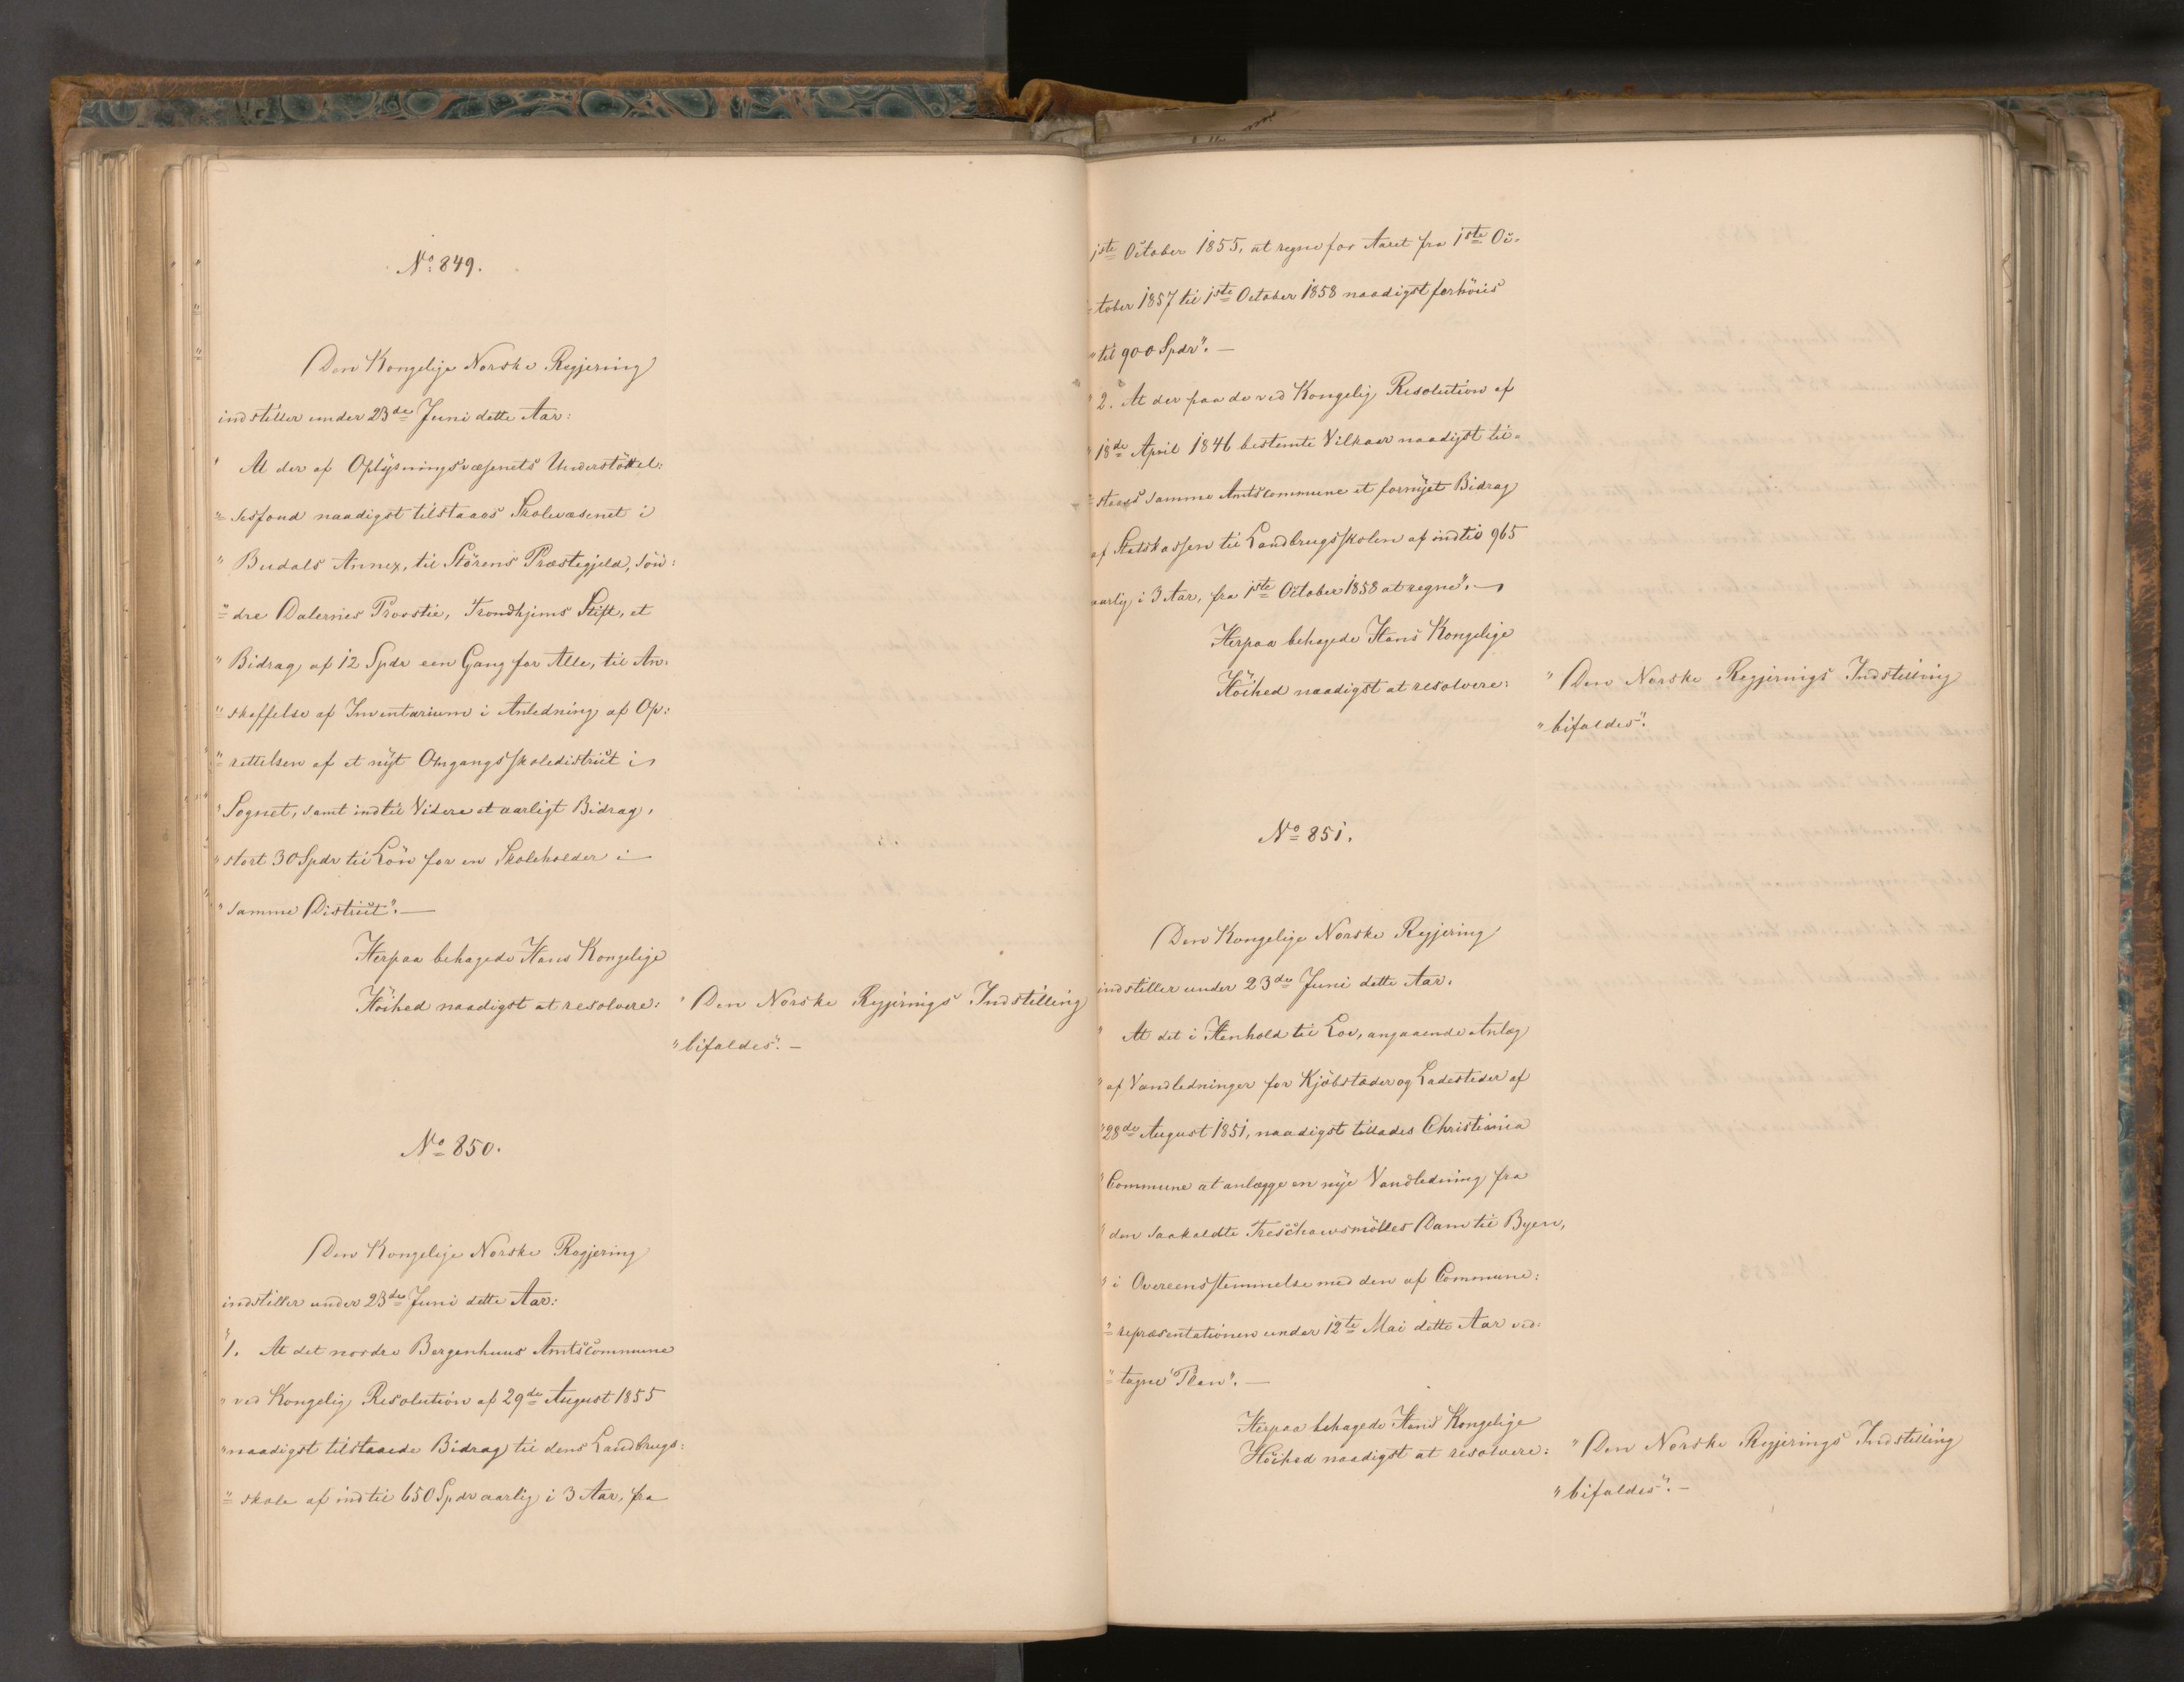 No 849.
Den Kongelige Norske Regjering
indstiller under 23de Juni dette Aar:
" At der af Oplysningsvæsenets Understöttel:
"= sesfond naadigst tilstaaes Skolevæsenet i
" Budals Annex, til Störens Præstegjeld, Sön:
"= dre Dalernes Provstie, Trondhjems Stift, et
" Bidrag af 12 Spdr een Gang for Alle, til An:
"= skaffelse af Inventarium i Anledning af Op:
"= rettelsen af et nyt Omgangsskoledistrict i
" Sognet, samt indtil Videre et aarligt Bidrag,
" stort 30 Spdr til Lön for en Skoleholder i
" samme District". —
Herpaa behagede Hans Kongelige
Höihed naadigst at resolvere:
" Den Norske Regjerings Indstilling
" bifaldes". —
No 850.
Den Kongelige Norske Regjering
indstiller under 23de Juni dette Aar:
" 1. At det nordre Bergenhuus Amtscommune
" ved Kongelig Resolution af 29de August 1855
" naadigst tilstaaede Bidrag til dens Landbrugs:
"= skole af indtil 650 Spdr aarlig i 3 Aar, fra
1ste October 1855, at regne for Aaret fra 1ste Oc:
= tober 1857 til 1ste October 1858 naadigst forhöies
" til 900 Spdr". —
" 2. At der paa de ved Kongelig Resolution af
" 18de April 1846 bestemte Vilkaar naadigst til:
"= staaes samme Amtscommune et fornyet Bidrag
af Statskassen til Landbrugsskolen af indtil 965
aarlig i 3 Aar, fra 1ste October 1858 at regne". —
Herpaa behagede Hans Kongelige
Höihed naadigst at resolvere:
" Den Norske Regjerings Indstilling
" bifaldes".
No 851.
Den Kongelige Norske Regjering
indstiller under 23de Juni dette Aar:
" At det i Henhold til Lov, angaaende Anlæg
" af Vandledninger for Kjöbstæder og Ladesteder af
" 28de August 1851, naadigst tillades Christiania
" Commune at anlægge en nye Vandledning fra
" den saakaldte Treschowsmölles Dam til Byen,
" i Overeensstemmelse med den af Commune:
"= repræsentationen under 12te Mai dette Aar ved:
"= tagne Plan". —
Herpaa behagede Hans Kongelige
Höihed naadigst at resolvere:
" Den Norske Regjerings Indstilling
" bifaldes". —